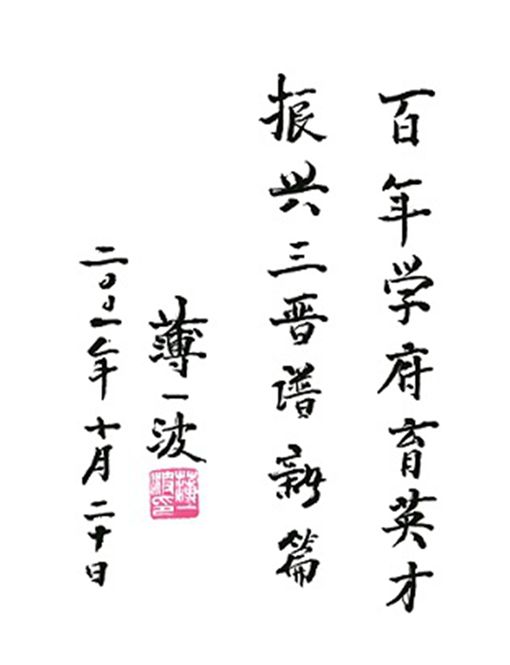 百年学府育英才
振兴三晋谱新篇
薄一波
薄一波印
二〇〇一年十月二十日